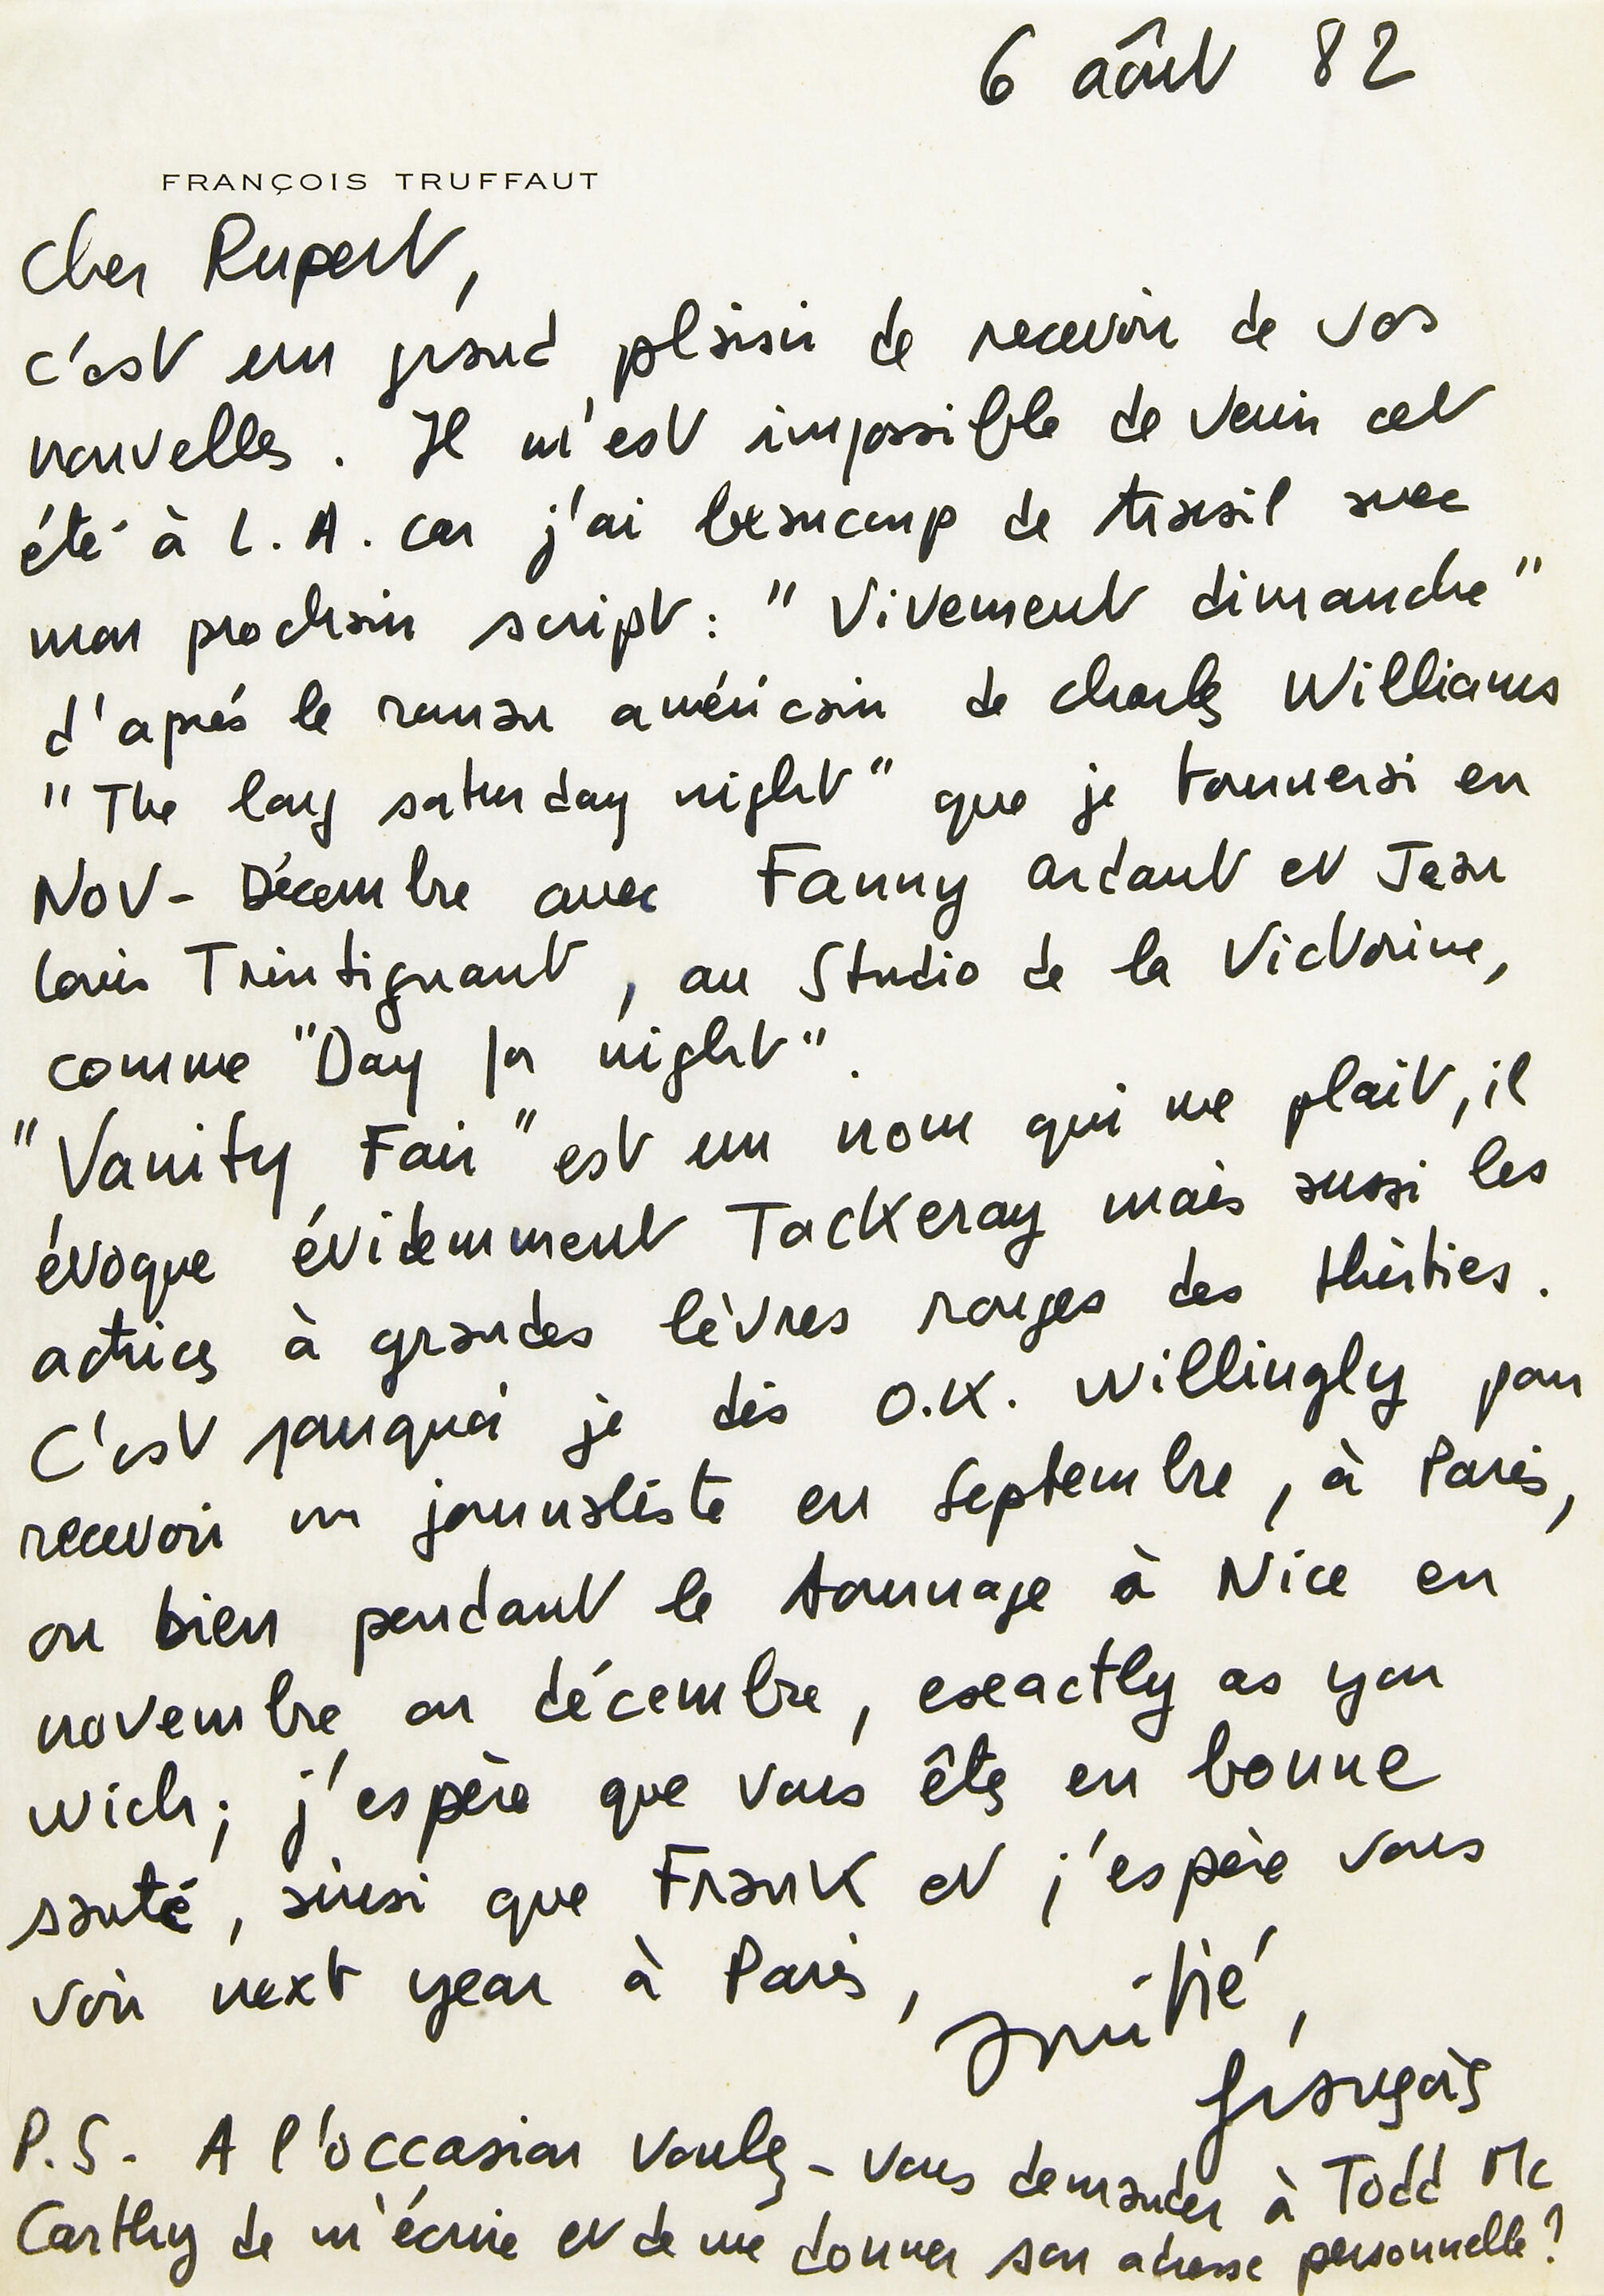 6 aôut 82
FRANÇOIS TRUFFAUT
Cher Rupert,
c'est un grand plaisir de recevoir de vos
nouvelles. Il m'est impossible de venir cet
été à L.A. car j'ai beaucoup de travail avec
mon prochain script : "Vivement dimanche"
d'aprés le roman américain de Charles Williams
"The long saturday night" que je tournerai en
Nov- Décembre avec Fanny Ardant et Jean
Louis Trintignant, au Studio de la Victorine,
comme "Day for night".
"Vanity Fair" est un nom qui me plait, il
évoque évidemment Tackeray mais aussi les
actrices à grandes lèvres rouges des thirties.
C'est pourquoi je dis O.K. willingly pour
recevoir un journaliste en Septembre, à Paris,
ou bien pendant le tournage à Nice en
novembre ou décembre, exeactly as you
wich; j'espère que vous êtes en bonne
santé, ainsi que Frank et j'espère vous
voir next year à Paris,
amitié,
françois
P.S. - A l'occasion voulez-vous demander à Todd Mc
Carthy de m'écrire et de me donner son adresse personnelle?